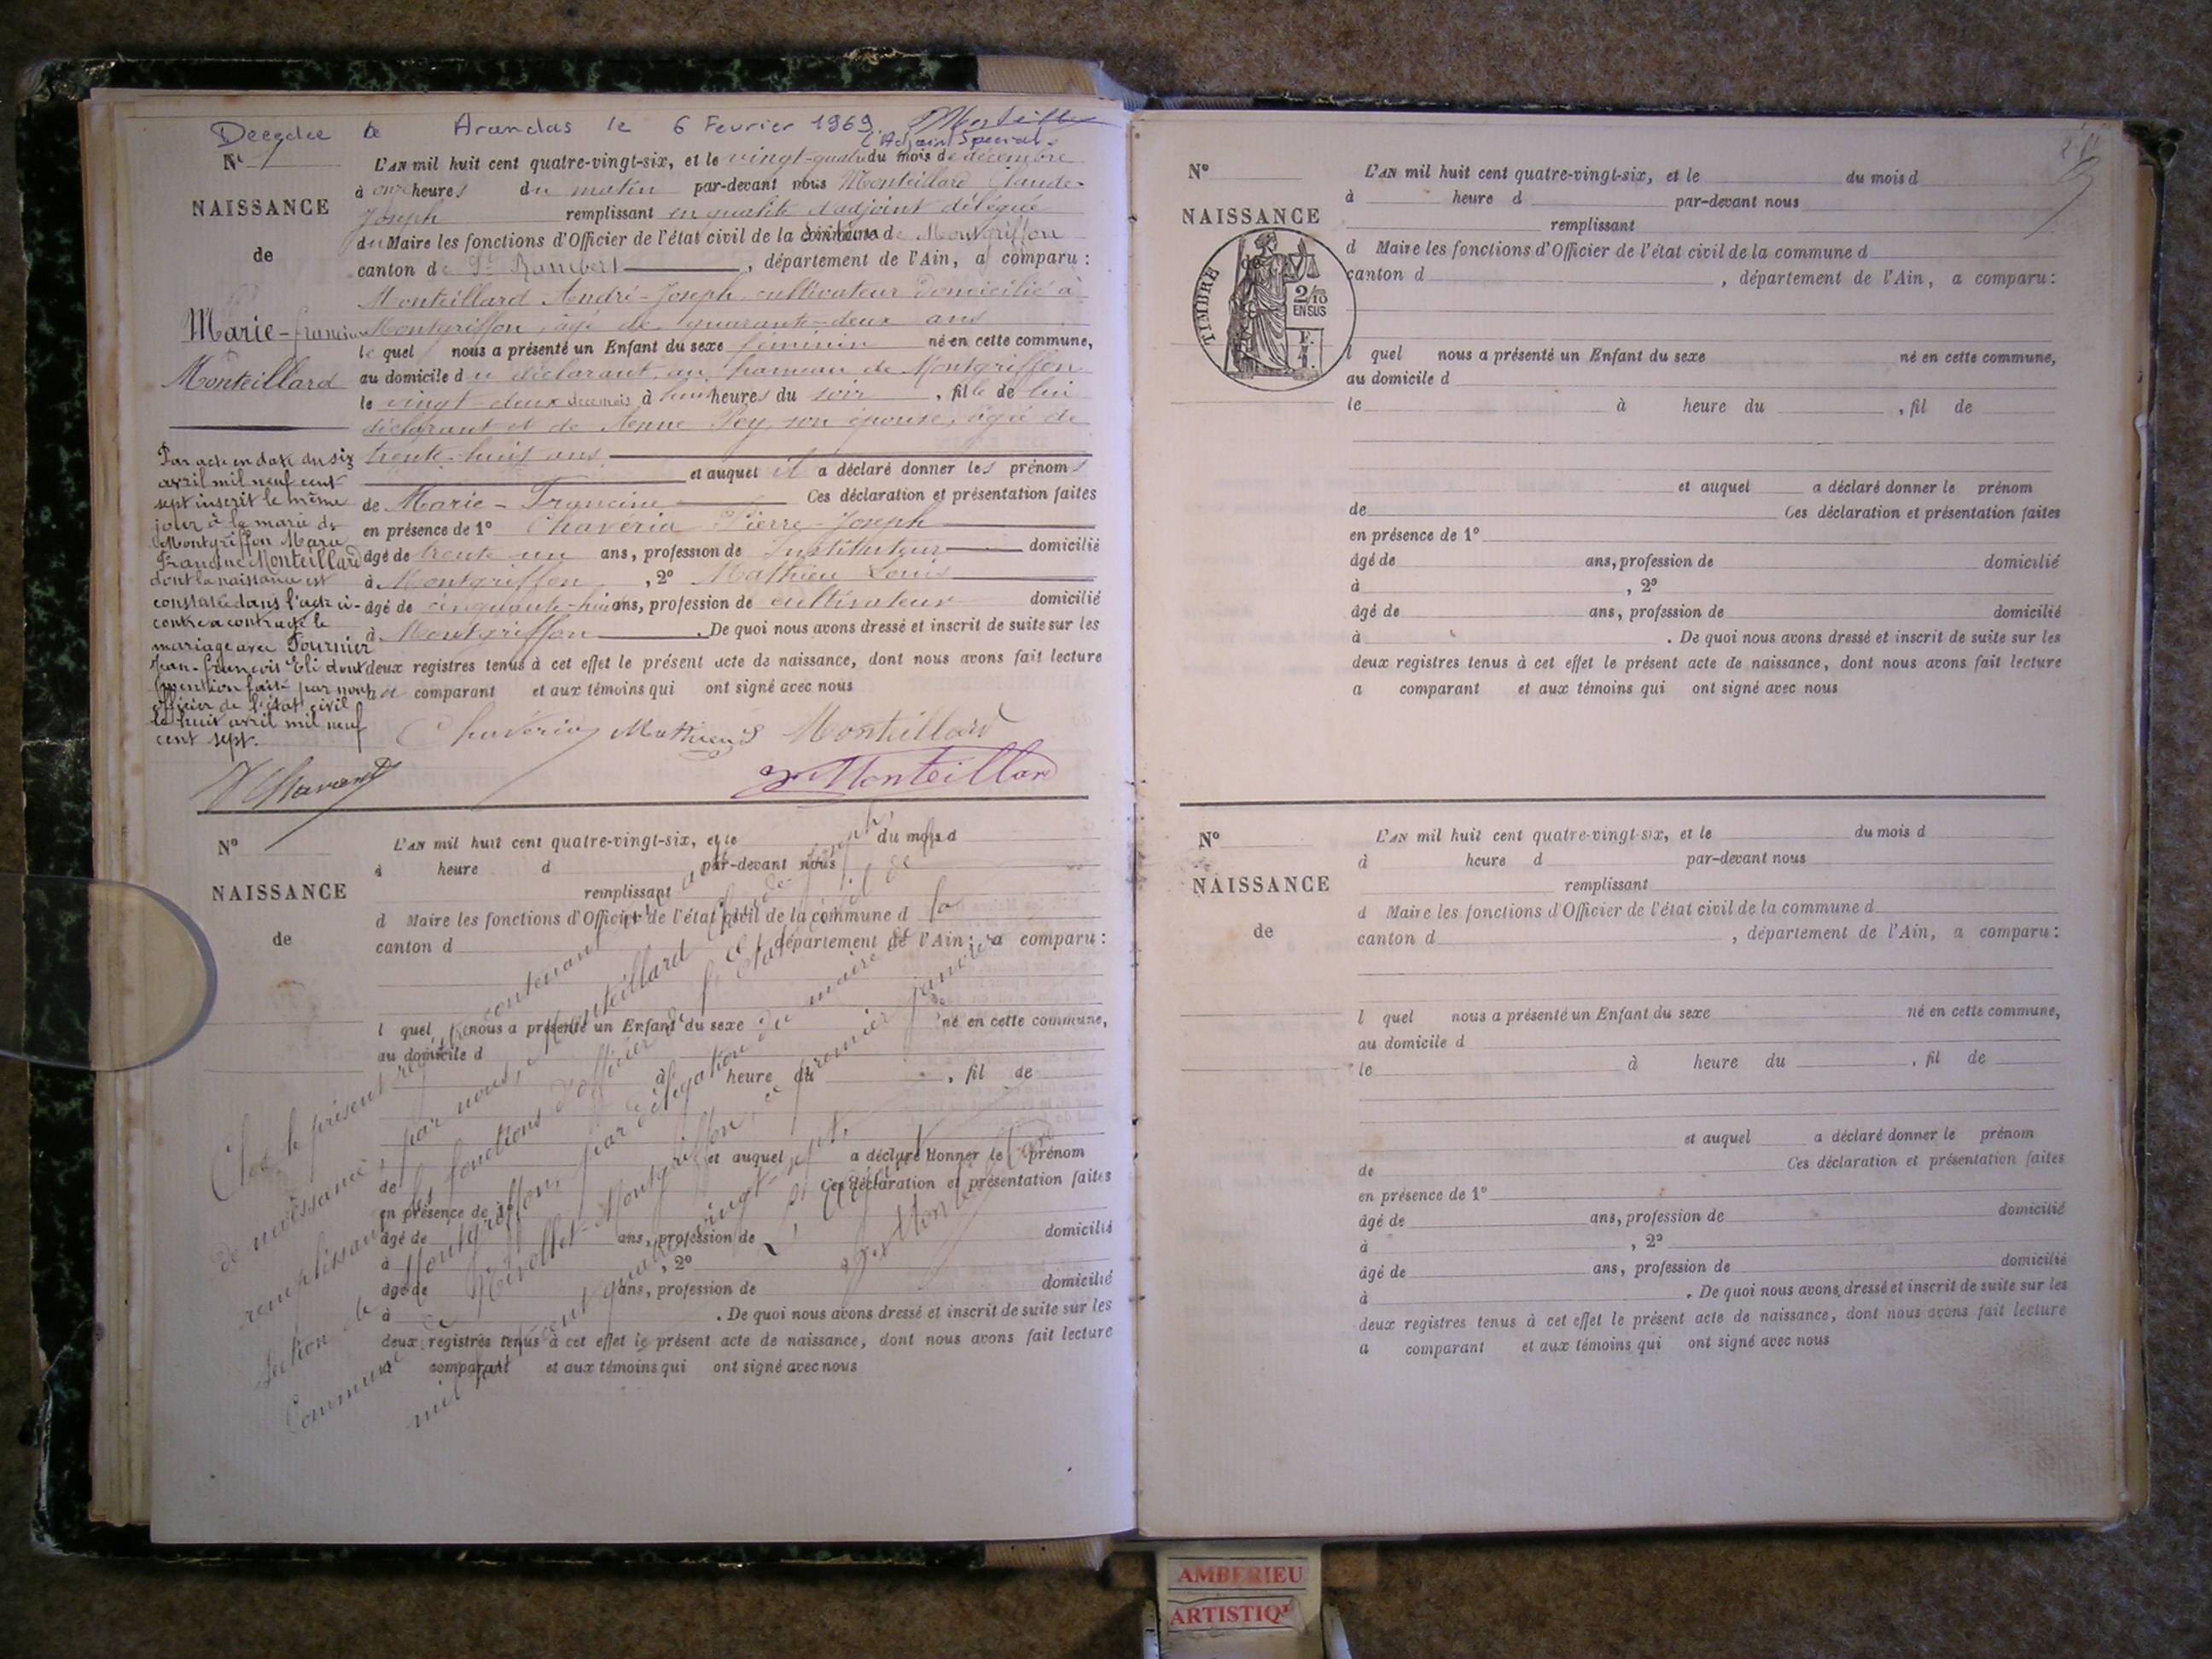 Decedee le Arandas le 6 Fevrier 1969.
L'Adjoint Special.
N° 7
L'AN mil huit cent quatre-vingt-six, et le vingt-quatre du mois de décembre
à onze heures du matin par-devant nous Monteillard Claude-
NAISSANCE
Joseph remplissant en qualité d'adjoint délégué
du Maire les fonctions d'Officier de l'état civil de la commune de Montgriffon
de
canton de St Rambert, département de l'Ain, a comparu :
Monteillard André-Joseph, cultivateur domicilié à
Marie-francine
Montgriffon, âgé de quarante-deux ans
le quel nous a présenté un Enfant du sexe féminin né en cette commune,
Monteillard
au domicile du déclarant, au hameau de Montgriffon
le vingt-deux à heures du soir, fille de lui
déclarant et de Jenne Pey, son épouse, âgée de
trente-huit ans
et auquel il a déclaré donner les prénoms
de Marie-Francine Ces déclaration et présentation faites
en présence de 1° Chaveria Pierre-Joseph
âgé de trente un ans, profession de Instituteur domicilié
à Montgriffon, 2° Mathieu Louis
âgé de cinquante-huit ans, profession de cultivateur domicilié
à Montgriffon. De quoi nous avons dressé et inscrit de suite sur les
deux registres tenus à cet effet le présent acte de naissance, dont nous avons fait lecture
comparant et aux témoins qui ont signé avec nous
Par acte en date du six
avril mil neuf cent
sept inscrit le même
jour à la mairie de
Montgriffon Marie
Francine Monteillard
dont la naissance est
constatée dans l'acte ci-
contre a contracté le
mariage avec Fournier
Jean-françois Eli dont
mention faite par nous
officier de l'état civil
le huit avril mil neuf
cent sept.
Chavéria Mathieu Monteillard
Monteillard
N°
L'AN mil huit cent quatre-vingt-six, et le du mois d
à heure d par-devant nous
NAISSANCE
remplissant
d Maire les fonctions d'Officier de l'état civil de la commune d
de
canton d département de l'Ain, a comparu :
l quel nous a présenté un Enfant du sexe né en cette commune,
au domicile d
à heure du , fil de
et auquel a déclaré donner le prénom
de Ces déclaration et présentation faites
en présence de 1°
âgé de ans, profession de domicilié
à , 2°
âgé de ans, profession de domicilié
à . De quoi nous avons dressé et inscrit de suite sur les
deux registres tenus à cet effet le présent acte de naissance, dont nous avons fait lecture
a comparant et aux témoins qui ont signé avec nous
Clos le présent registre contenant
de naissance, par nous, Monteillard Claude Joseph
remplissant les fonctions d'officier de l'État civil de la
section de Montgriffon, par délégation du maire de la
Commune de Nivollet-Montgriffon, ce premier janvier
mil huit cent quatre vingt sept.
L'adjoint
Monteillard
N°
L'AN mil huit cent quatre-vingt-six, et le du mois d
à heure d par-devant nous
NAISSANCE
remplissant
d Maire les fonctions d'Officier de l'état civil de la commune d
de
canton d , département de l'Ain, a comparu :
TIMBRE
2/10
EN SUS
F.
1.
l quel nous a présenté un Enfant du sexe né en cette commune,
au domicile d
le à heure du , fil de
et auquel a déclaré donner le prénom
de Ces déclaration et présentation faites
en présence de 1°
âgé de ans, profession de domicilié
à , 2°
âgé de ans, profession de domicilié
à . De quoi nous avons dressé et inscrit de suite sur les
deux registres tenus à cet effet le présent acte de naissance, dont nous avons fait lecture
a comparant et aux témoins qui ont signé avec nous
N°
L'AN mil huit cent quatre-vingt-six, et le du mois d
à heure d par-devant nous
NAISSANCE
remplissant
d Maire les fonctions d'Officier de l'état civil de la commune d
de
canton d , département de l'Ain, a comparu :
l quel nous a présenté un Enfant du sexe né en cette commune,
au domicile d
le à heure du , fil de
et auquel a déclaré donner le prénom
de Ces déclaration et présentation faites
en présence de 1°
âgé de ans, profession de domicilié
à , 2°
âgé de ans, profession de domicilié
à . De quoi nous avons dressé et inscrit de suite sur les
deux registres tenus à cet effet le présent acte de naissance, dont nous avons fait lecture
a comparant et aux témoins qui ont signé avec nous
AMBERIEU
ARTISTIQ